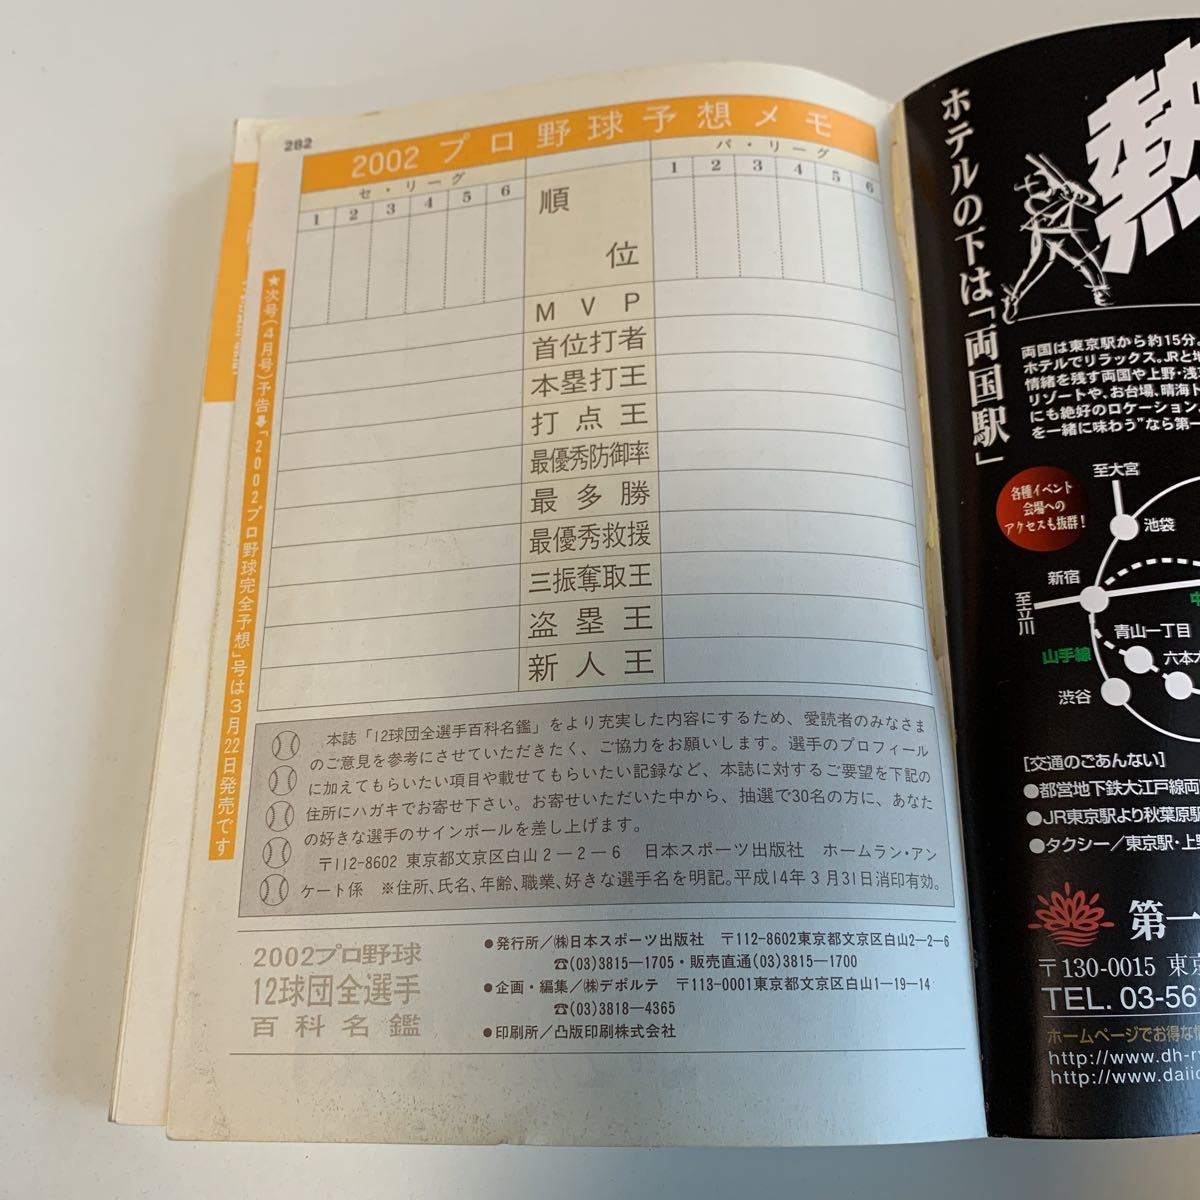 282
2002 プロ野球予想メモ
セ・リーグ
パ・リーグ
1 2 3 4 5 6
順位
1 2 3 4 5 6
MVP
首位打者
本塁打王
打点王
最優秀防御率
最多勝
最優秀救援
三振奪取王
盗塁王
新人王
★次号(4月号)予告➡「2002プロ野球完全予想」号は3月22日発売です
本誌「12球団全選手百科名鑑」をより充実した内容にするため、愛読者のみなさま
のご意見を参考にさせていただきたく、ご協力をお願いします。選手のプロフィール
に加えてもらいたい項目や載せてもらいたい記録など、本誌に対するご要望を下記の
住所にハガキでお寄せ下さい。お寄せいただいた中から、抽選で30名の方に、あなた
の好きな選手のサインボールを差し上げます。
〒112-8602 東京都文京区白山2―2―6 日本スポーツ出版社 ホームラン・アン
ケート係 ※住所、氏名、年齢、職業、好きな選手名を明記。平成14年3月31日消印有効。
2002プロ野球
12球団全選手
百科名鑑
●発行所/㈱日本スポーツ出版社 〒112-8602東京都文京区白山2-2-6
☎(03)3815-1705・販売直通(03)3815-1700
●企画・編集/㈱デポルテ 〒113-0001東京都文京区白山1-19-14
☎(03)3818-4365
●印刷所/凸版印刷株式会社
ホテルの下は「両国駅」
熱
両国は東京駅から約15分。
ホテルでリラックス。JRと地
情緒を残す両国や上野・浅
リゾートや、お台場、晴海ト
にも絶好のロケーション。
を一緒に味わう"なら第一
各種イベント
会場への
アクセスも抜群!
至大宮
池袋
新宿
至立川
中
青山一丁目
山手線
六本木
渋谷
[交通のごあんない]
●都営地下鉄大江戸線両
●JR東京駅より秋葉原駅
●タクシー/東京駅・上野
第一
〒130-0015 東京
TEL. 03-56
ホームページでお得な情
http://www.dh-r
http://www.daiic